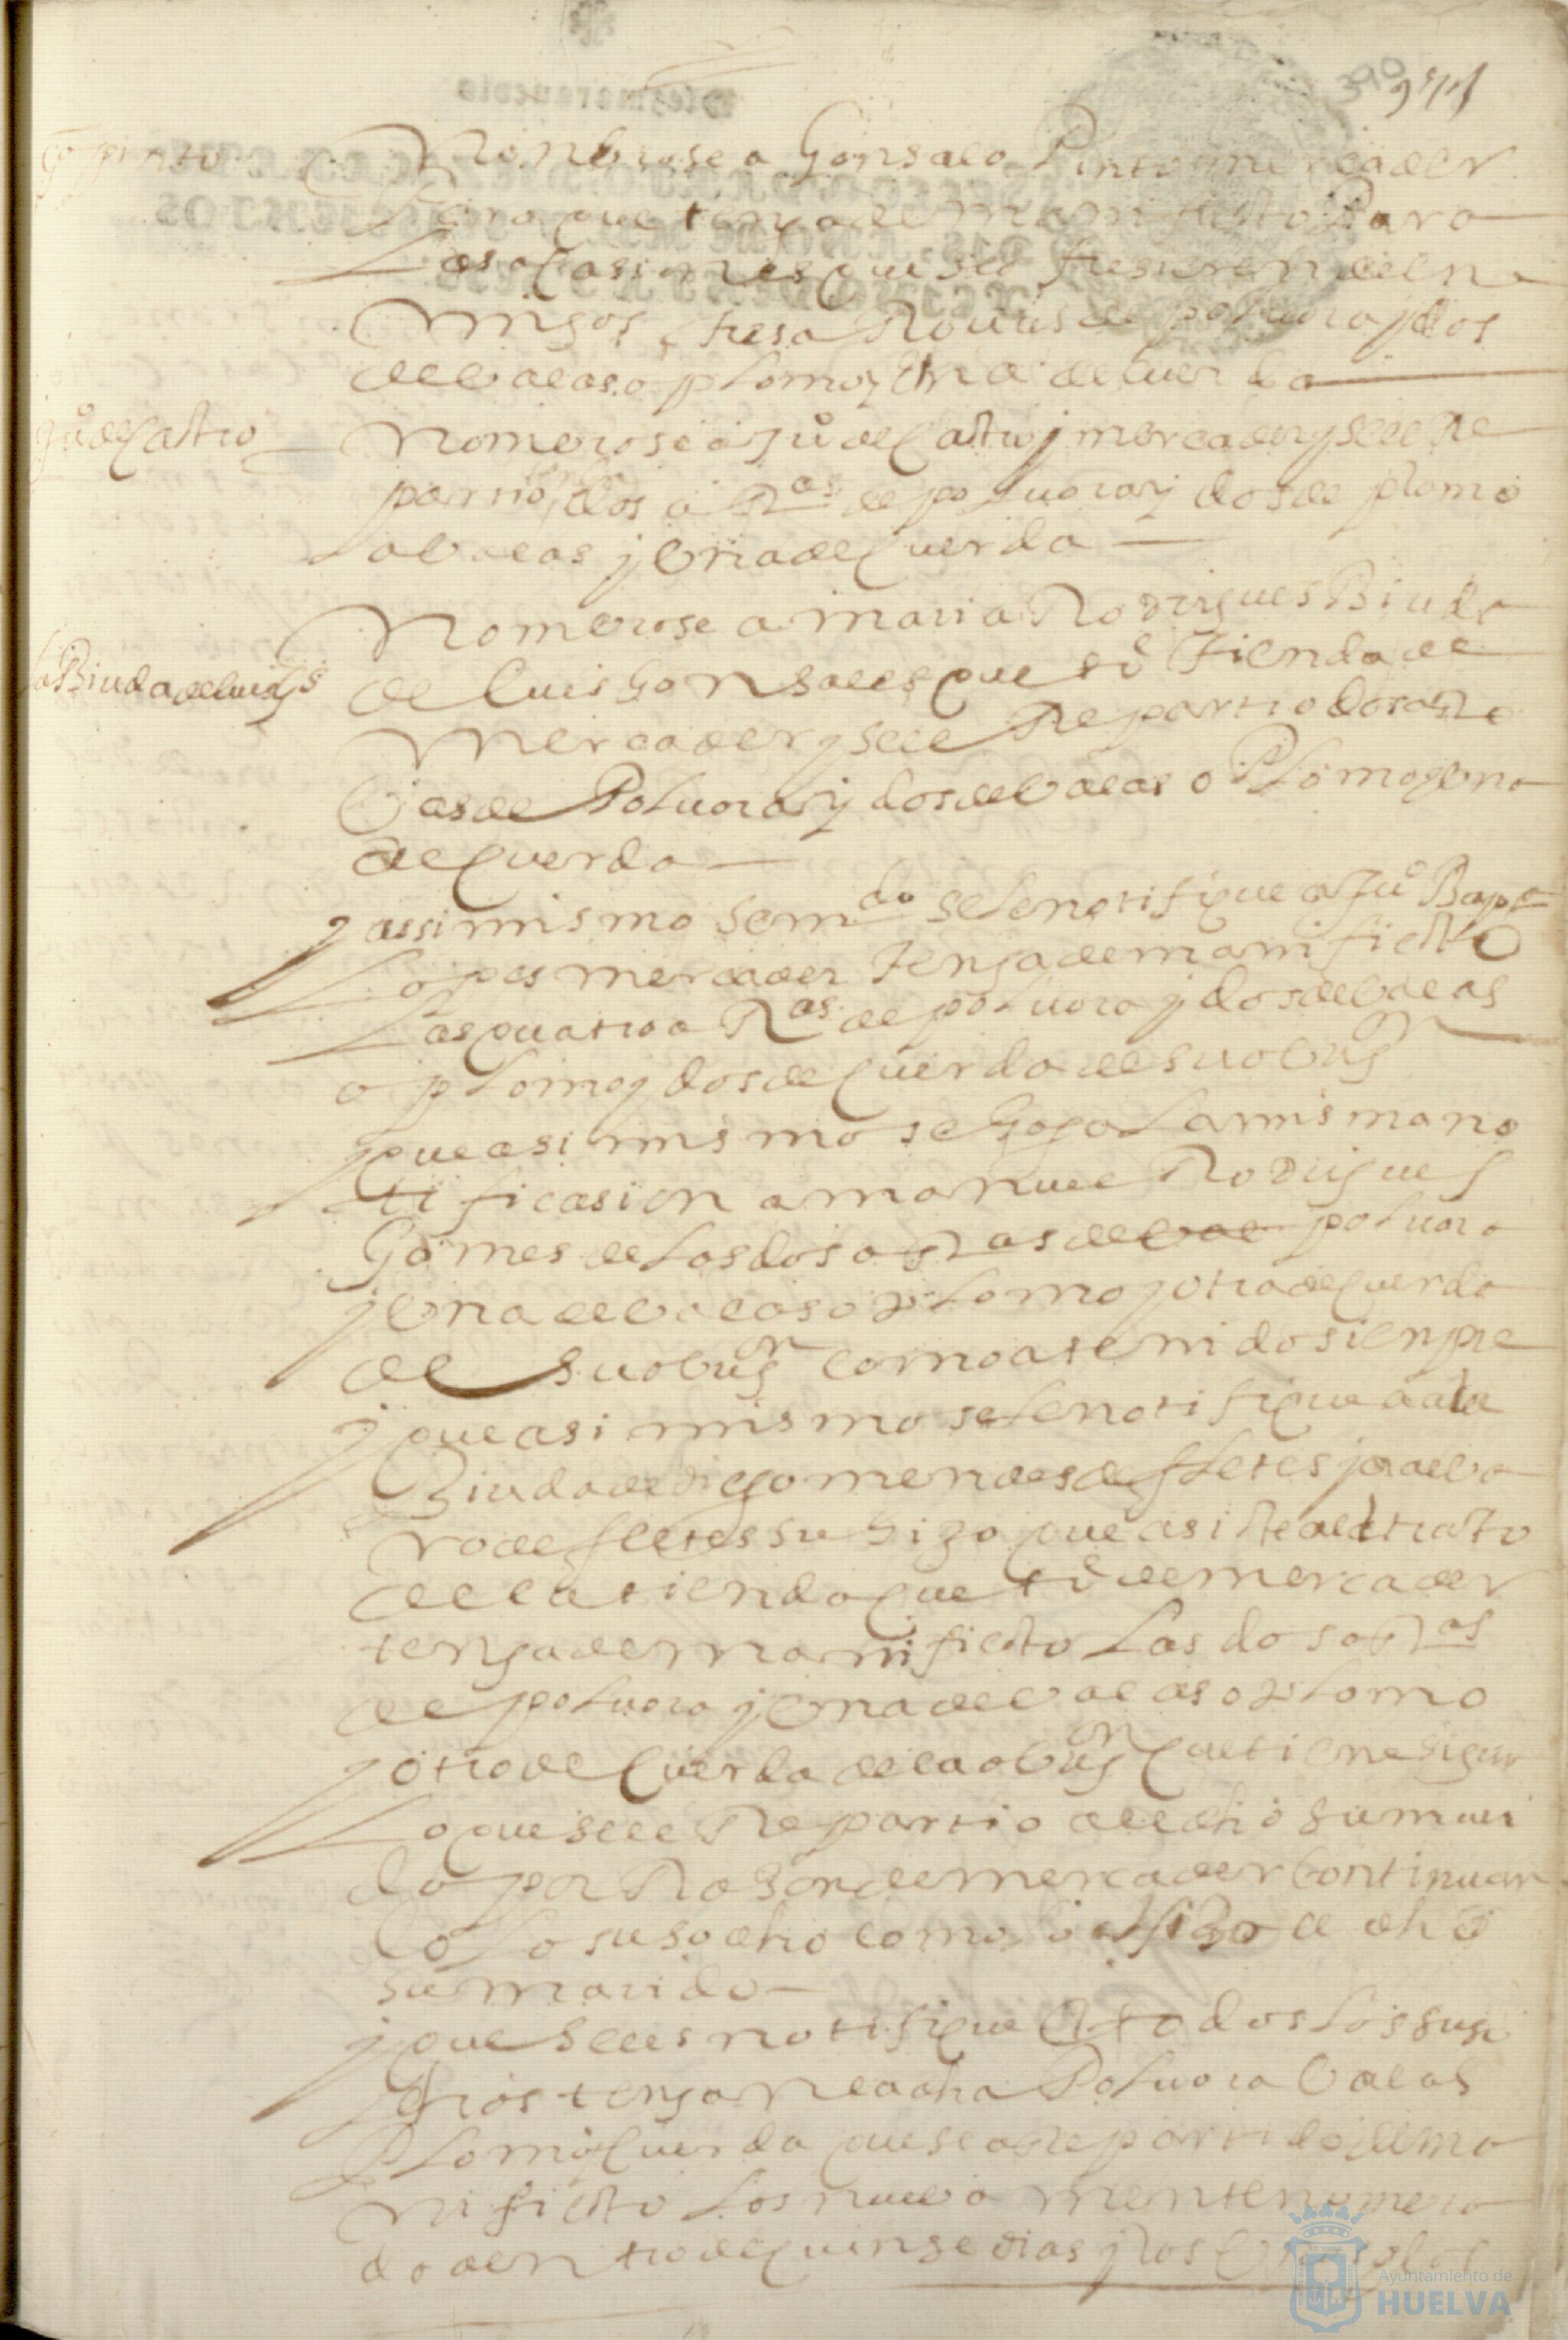 390
Gº pinto
Nonbrose a Gonsalo Pinto mercader
Para que tenga de manifiesto Para
Las ocasiones que se ofresieren de ene
migos tres aRouas de poluora y dos
de balas o plomo y Una de cuerda
Juº de Castro
Nombrose a Juº de Castro mercader y se le Re
partio dos aRas de poluora y dos de plomo
o balas y bna de Cuerda
La Biuda de luis Gs
Nombrose a maria Rodrigues Biuda
de luis Gonsales que tubo Tienda de
Mercader y se le Repartio dos aRo
bas de Poluora y dos de balas o Plomo y bna
de Cuerda
y assi mismo se mdo se le notifique a Juº Bapta
Lopes mercader Tenga de manifiesto
Las quatro aRas de poluora y dos de balas
o plomo y dos de Cuerda de su obligon
y que asi mismo se haga La misma no
tificasion a manuel Rodrigues
Gomes de Las dos aRas de bal poluora
y bna de balas o plomo y otra de Cuerda
de su obligon como a tenido sienpre
y que asi mismo se le notifique a la
Biuda de diego mendes de fletes y a alba
ro de fletes su hijo que asiste al trato
de la tienda que tubo de mercader
tenga de manifiesto Las dos aRas
de poluora y bna de balas o plomo
y otra de Cuerda de la obligon que tiene
Lo que se le Repartio al dho su mari
do por Rason de mercader continuan
do Lo susodho como lo hizo el dho
su marido
y que se les notifique a todos Los suso
dhos tengan la dha Poluora balas
Plomo y Cuerda que se a repartido de ma
nifiesto Los nueba mente nombra
do dentro de quinse dias y los
Ayuntamiento de
HUELVA